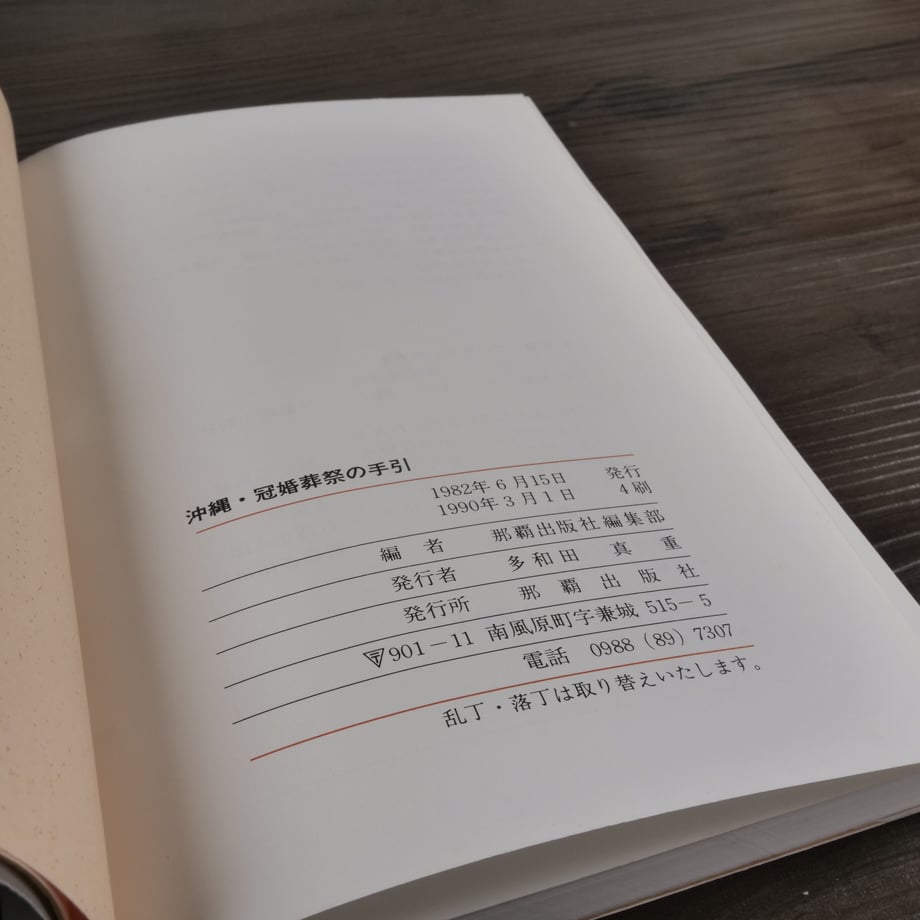 沖縄・冠婚葬祭の手引
1982年6月15日 発行
1990年3月1日 4刷
編者 那覇出版社編集部
発行者 多和田 真重
発行所 那覇出版社
〒901-11 南風原町字兼城 515-5
電話 0988 (89) 7307
乱丁・落丁は取り替えいたします。